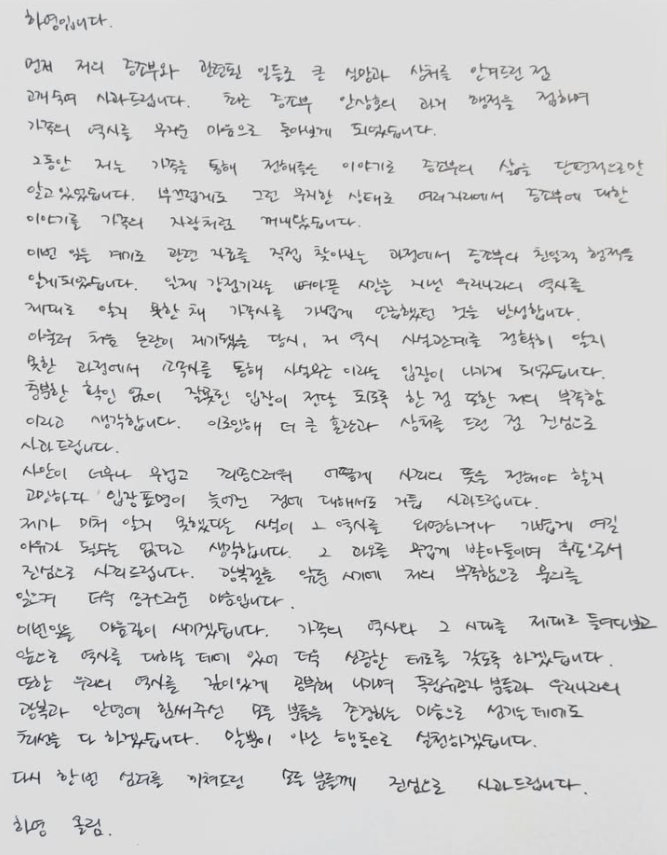 하영입니다.
먼저 저의 증조부와 관련된 일들로 큰 실망과 상처를 안겨드린 점
고개 숙여 사과드립니다. 최근 증조부 안상호의 과거 행적을 접하며
가족의 역사를 무거운 마음으로 돌아보게 되었습니다.
그동안 저는 가족을 통해 전해들은 이야기로 증조부의 삶을 단편적으로만
알고 있었습니다. 부끄럽게도 그런 무지한 상태로 여러 자리에서 증조부에 대한
이야기를 가족의 자랑처럼 꺼내왔습니다.
이번 일을 계기로 관련 자료를 직접 찾아보는 과정에서 증조부의 친일적 행적을
알게되었습니다. 일제 강점기라는 뼈아픈 시간을 지낸 우리나라의 역사를
제대로 알지 못한 채 가족사를 가볍게 언급했던 것을 반성합니다.
아울러 처음 논란이 제기됐을 당시, 저 역시 사실관계를 정확히 알지
못한 과정에서 소속사를 통해 사실무근이라는 입장이 나가게 되었습니다.
충분한 확인 없이 잘못된 입장이 전달 되도록 한 점 또한 저의 부족함
이라고 생각합니다. 이로인해 더 큰 혼란과 상처를 드린 점 진심으로
사과드립니다.
사안이 너무나 무겁고 죄송스러워 어떻게 사죄의 뜻을 전해야 할지
고민하다 입장표명이 늦어진 점에 대해서도 거듭 사과드립니다.
제가 미처 알지 못했다는 사실이 그 역사를 외면하거나 가볍게 여길
이유가 될수는 없다고 생각합니다. 그 과오를 무겁게 받아들이며 후손으로서
진심으로 사죄드립니다. 광복절을 앞둔 시기에 저의 부족함으로 물의를
일으켜 더욱 송구스러운 마음입니다.
이번일을 마음깊이 새기겠습니다. 가족의 역사와 그 시대를 제대로 들여다보고
앞으로 역사를 대하는 데에 있어 더욱 신중한 태도를 갖도록 하겠습니다.
또한 우리의 역사를 깊이있게 공부해 나가며 독립유공자 분들과 우리나라의
광복과 안녕에 힘써주신 모든 분들을 존경하는 마음으로 섬기는 데에도
최선을 다 하겠습니다. 말뿐이 아닌 행동으로 실천하겠습니다.
다시 한번 심려를 끼쳐드린 모든 분들께 진심으로 사과드립니다.
하영 올림.